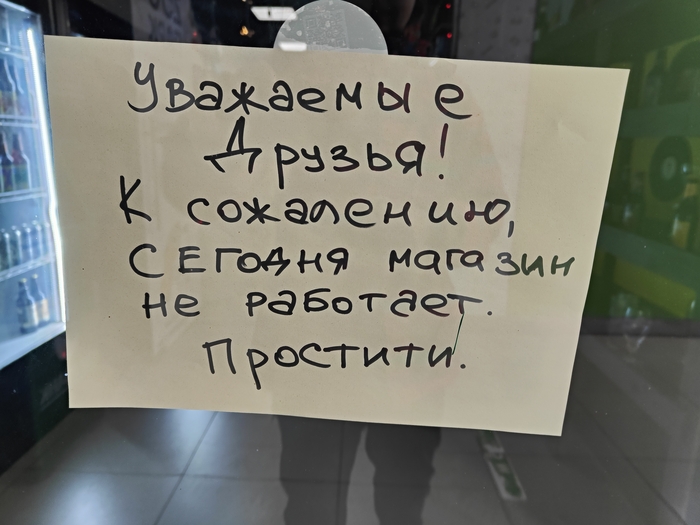 Уважаемые
Друзья!
К сожалению,
Сегодня магазин
не работает.
Простити.